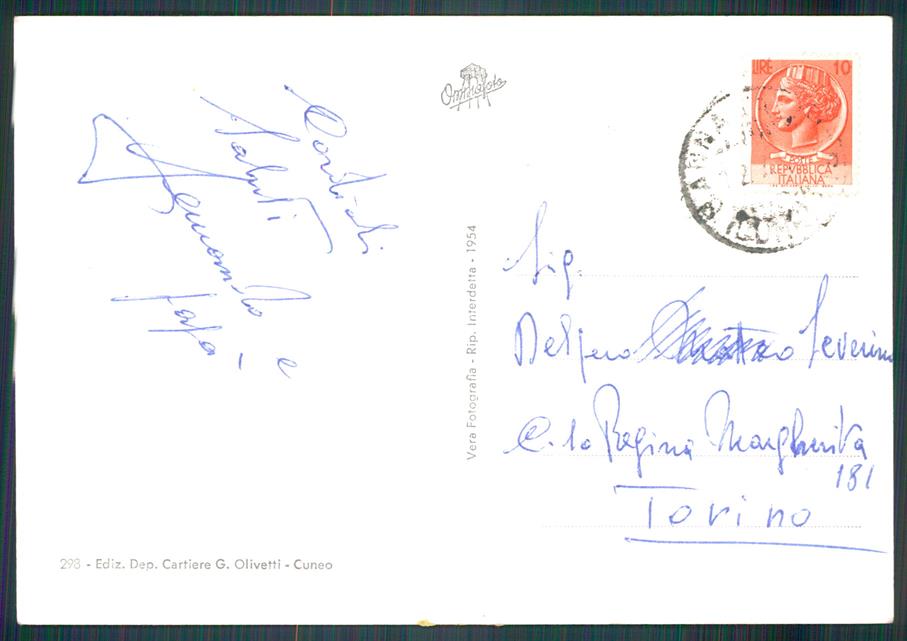 Cordiali
Saluti
Fernando e
Omniafoto
LIRE 10
POSTE
REPVBBLICA
ITALIANA
Vera Fotografia - Rip. Interdetta - 1954
Sig.
Delpero Severino
C.so Regina Margherita
181
Torino
298 - Ediz. Dep. Cartiere G. Olivetti - Cuneo